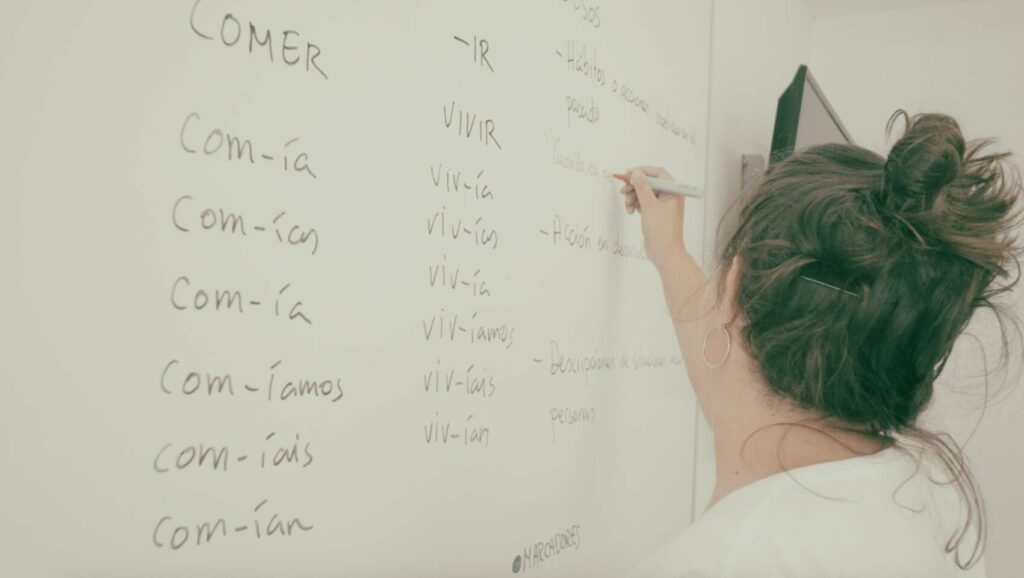 COMER
Com-ía
Com-ías
Com-ía
Com-íamos
Com-íais
Com-ían
-IR
VIVIR
viv-ía
viv-ías
viv-ía
viv-íamos
viv-íais
viv-ían
USOS
- Hábitos o acciones en el
pasado
"Cuando
- Acción en
- Descripciones de situaciones
personas
• MARCADORES